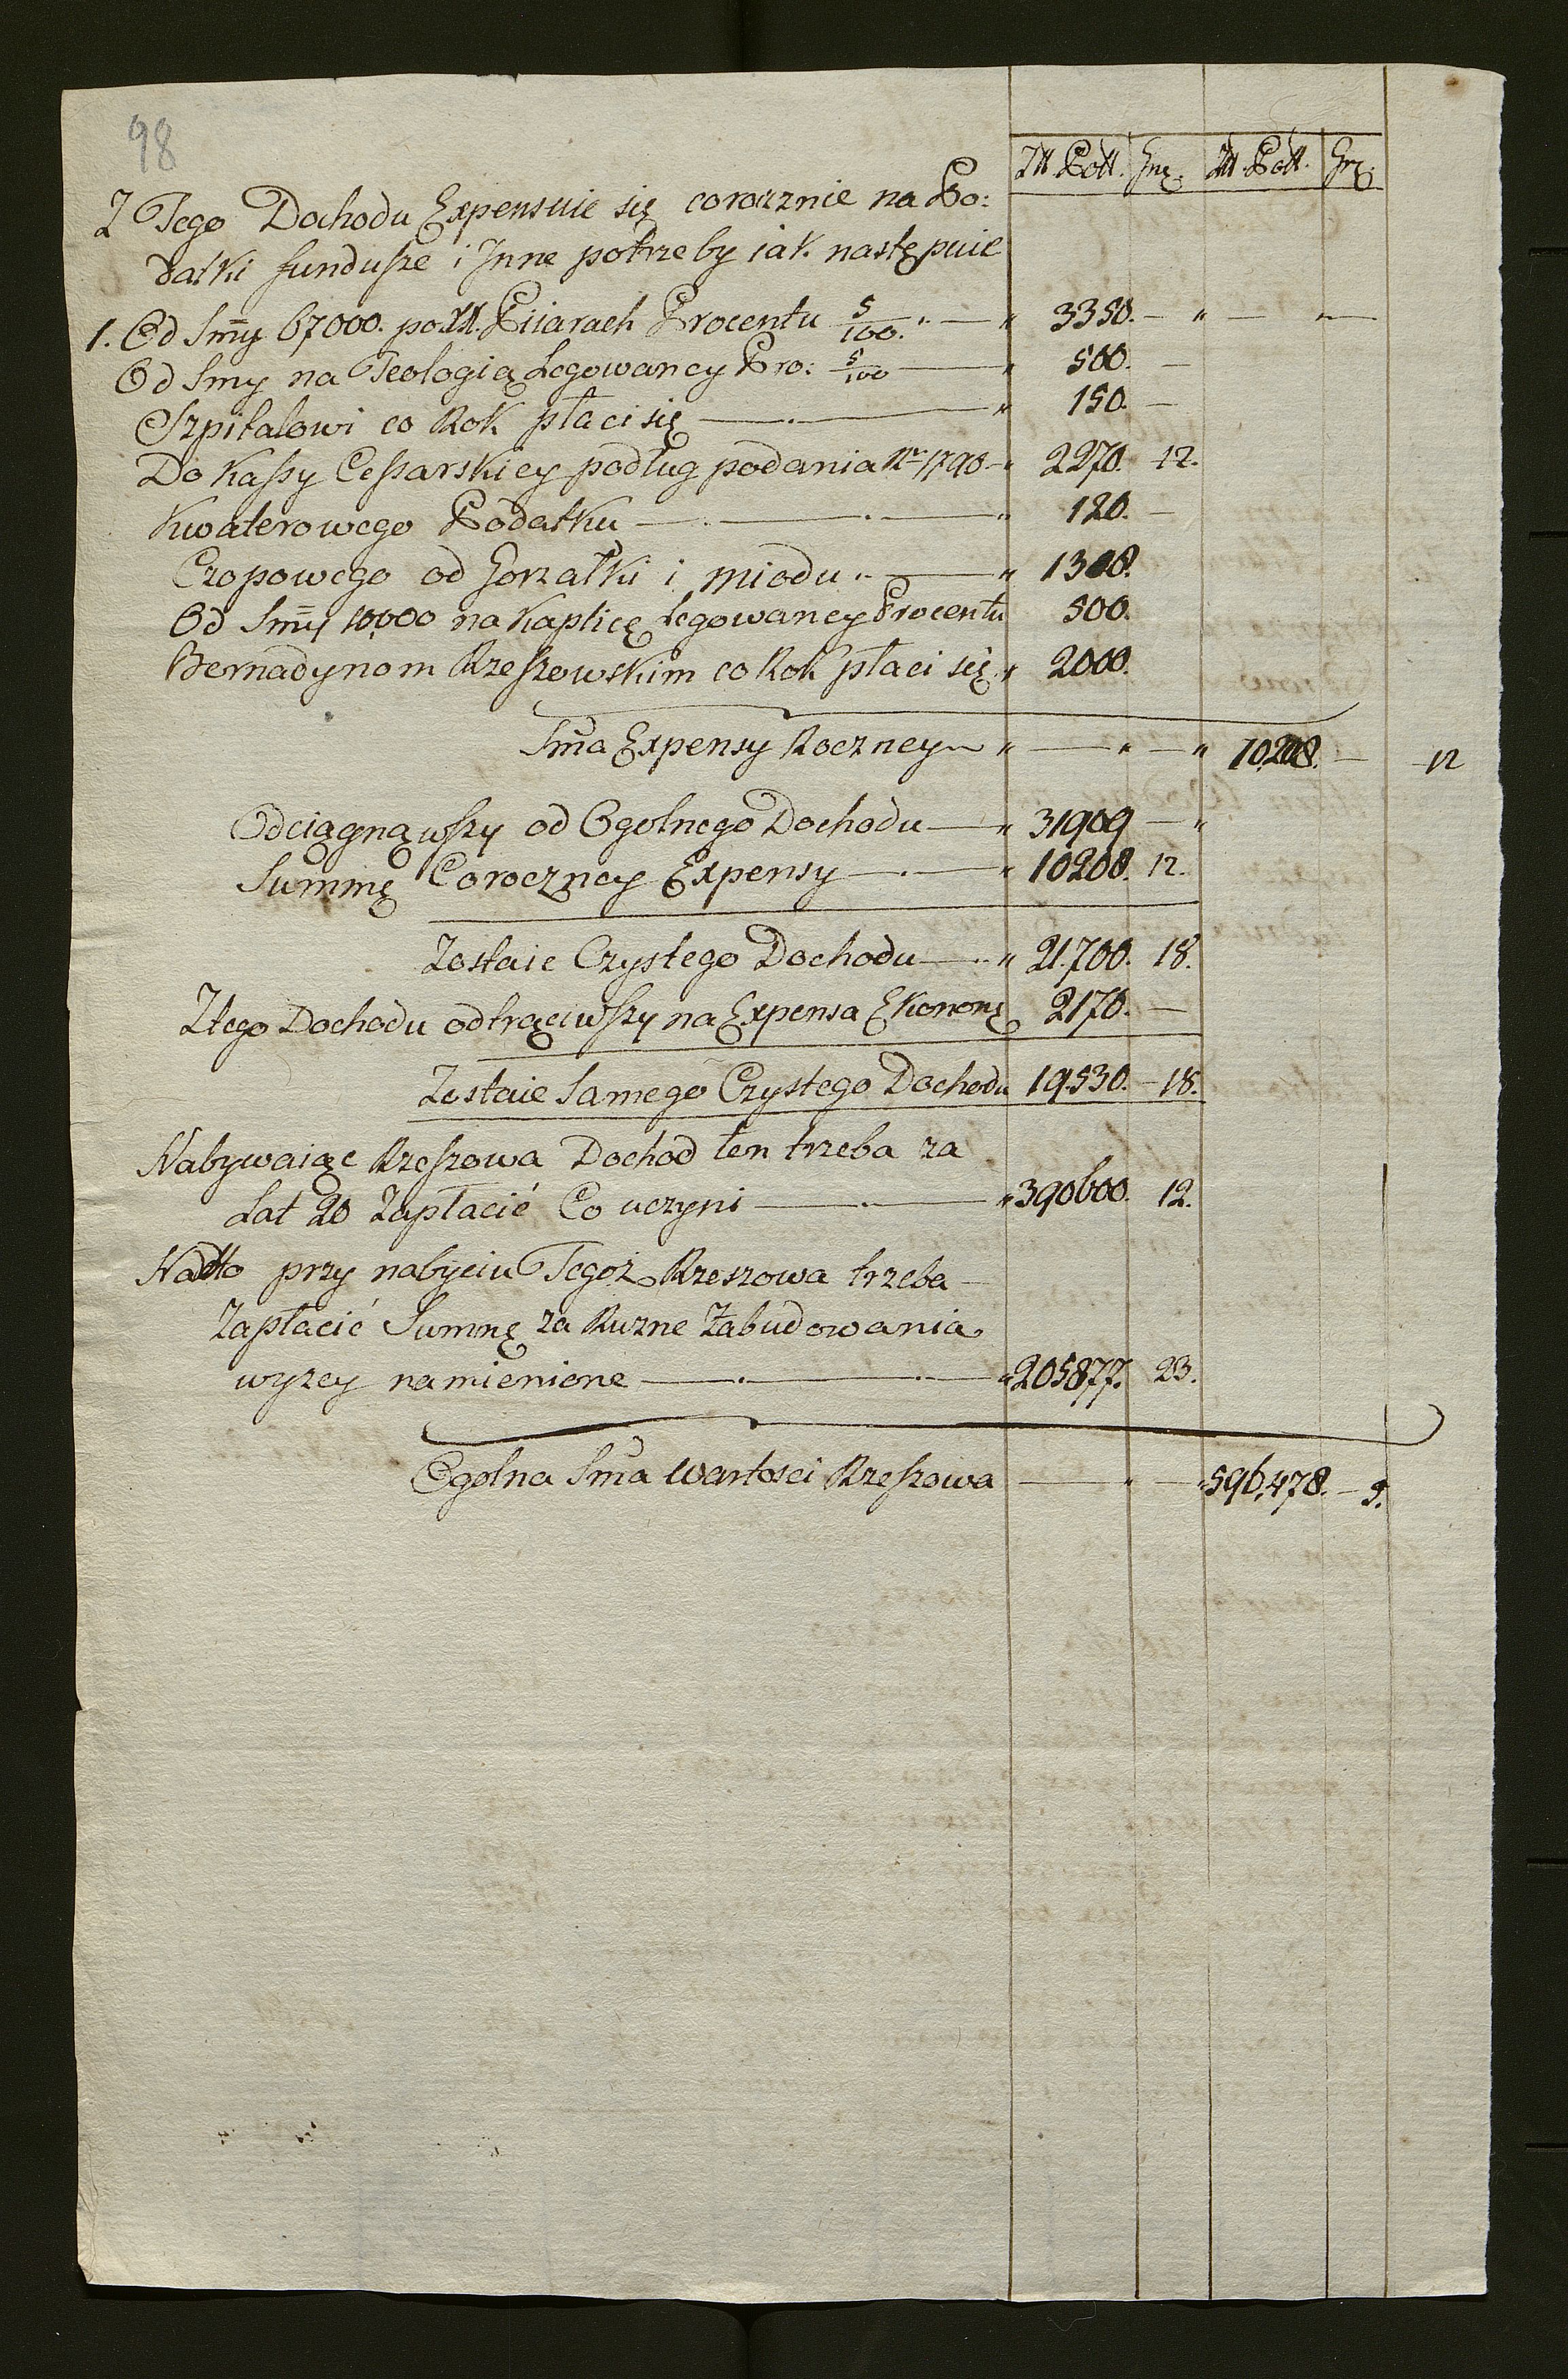 98
Zll Poll. Grz. Zll Poll. Grz.
Z Tego Dochodu Expensuie się corocznie na Po:
datki fundusze i Jnne potrzeby iak nastęPuie
1. Od Sm̄y 67000. po XX. Piiarach Procentu 5/100. „ — „ 3350. — „ — „ —
Od Smy na Teologią Legowaney Pro: 5/100 — „ 500. —
Szpitalowi co Rok płaci się — . — „ 150. —
Do Kassy Cessarskiey podług podania Rr 1790 — „ 2270. 12.
Kwaterowego Podatku — . — . — „ 120. —
Czopowego od Gorzałki i miodu „ — „ 1308.
Od Sm̄y 10,000 na Kaplicę Legowaney Procentu 500.
Bernadynom Rzeszowskim co Rok płaci się „ 2000.
Sm̄a Expensy Roczney „ — „ — „ 10208. — 12
Odciągnąwszy od Ogolnego Dochodu — „ 31909 — „
Summę Coroczney Expensy — . — „ 10208. 12.
Zostaie Czystego Dochodu — „ 21.700. 18.
Z tego Dochodu odtrąciwszy na Expensa Ekonomę 2170. —
Zostaie Samego Czystego Dochodu 19.530. — 18.
Nabywaiąc Rzeszowa Dochod ten trzeba za
Lat 20 Zapłacić Co uczyni — . — „ 390600. 12.
Nadto przy nabyciu Tegoż Rzeszowa trzeba —
Zapłacić Summę za Ruzne Zabudowania
wyzey namienione — . — . — „ 205877. 23.
Ogolna Sm̄a wartosci Rzeszowa — „ — „ 596,478. — 5.